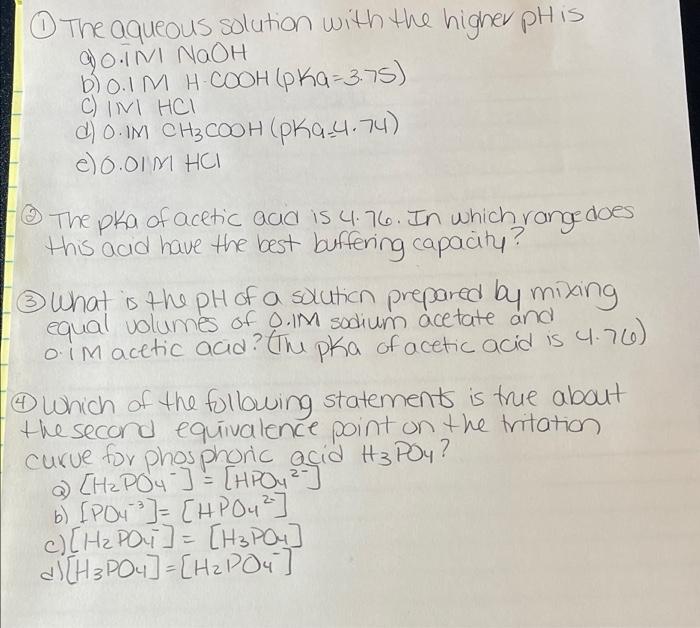 ① The aqueous solution with the higher pH is
a) 0.1M NaOH
b) 0.1M H-COOH (pKa=3.75)
c) 1M HCl
d) 0.1M CH₃COOH (pKa=4.74)
e) 0.01M HCl
② The pka of acetic acid is 4.76. In which range does
this acid have the best buffering capacity?
③ What is the pH of a solution prepared by mixing
equal volumes of 0.1M sodium acetate and
0.1M acetic acid? (The pka of acetic acid is 4.76)
④ Which of the following statements is true about
the second equivalence point on the tritation
curve for phosphoric acid H₃PO₄?
a) [H₂PO₄⁻] = [HPO₄²⁻]
b) [PO₄⁻³] = [HPO₄²⁻]
c) [H₂PO₄⁻] = [H₃PO₄]
d) [H₃PO₄] = [H₂PO₄⁻]